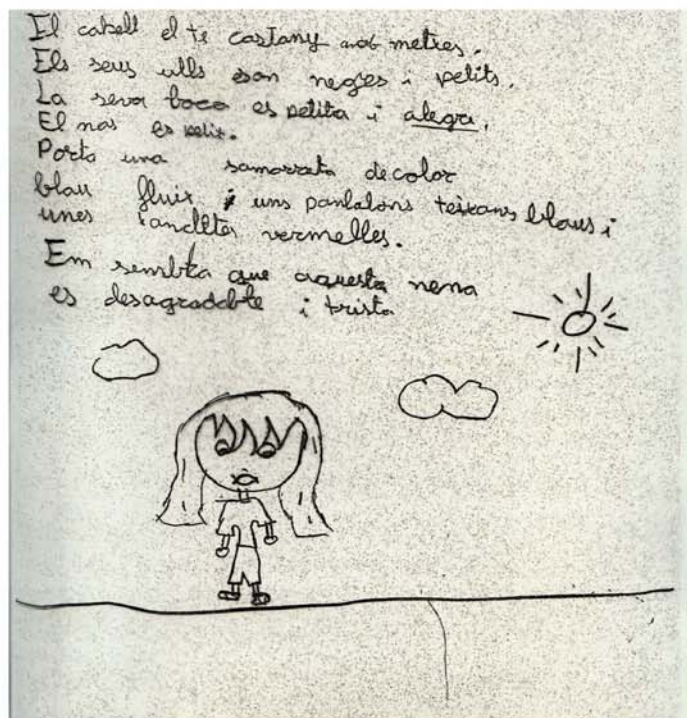 El cabell el te castany amb metxes.
Els seus ulls son negres i petits.
La seva boca es petita i alegra.
El nas es petit.
Porta una samarreta de color
blau fluix i uns pantalons texans blaus i
unes vermelles.
Em sembla que aquesta nena
es desagradable i trista